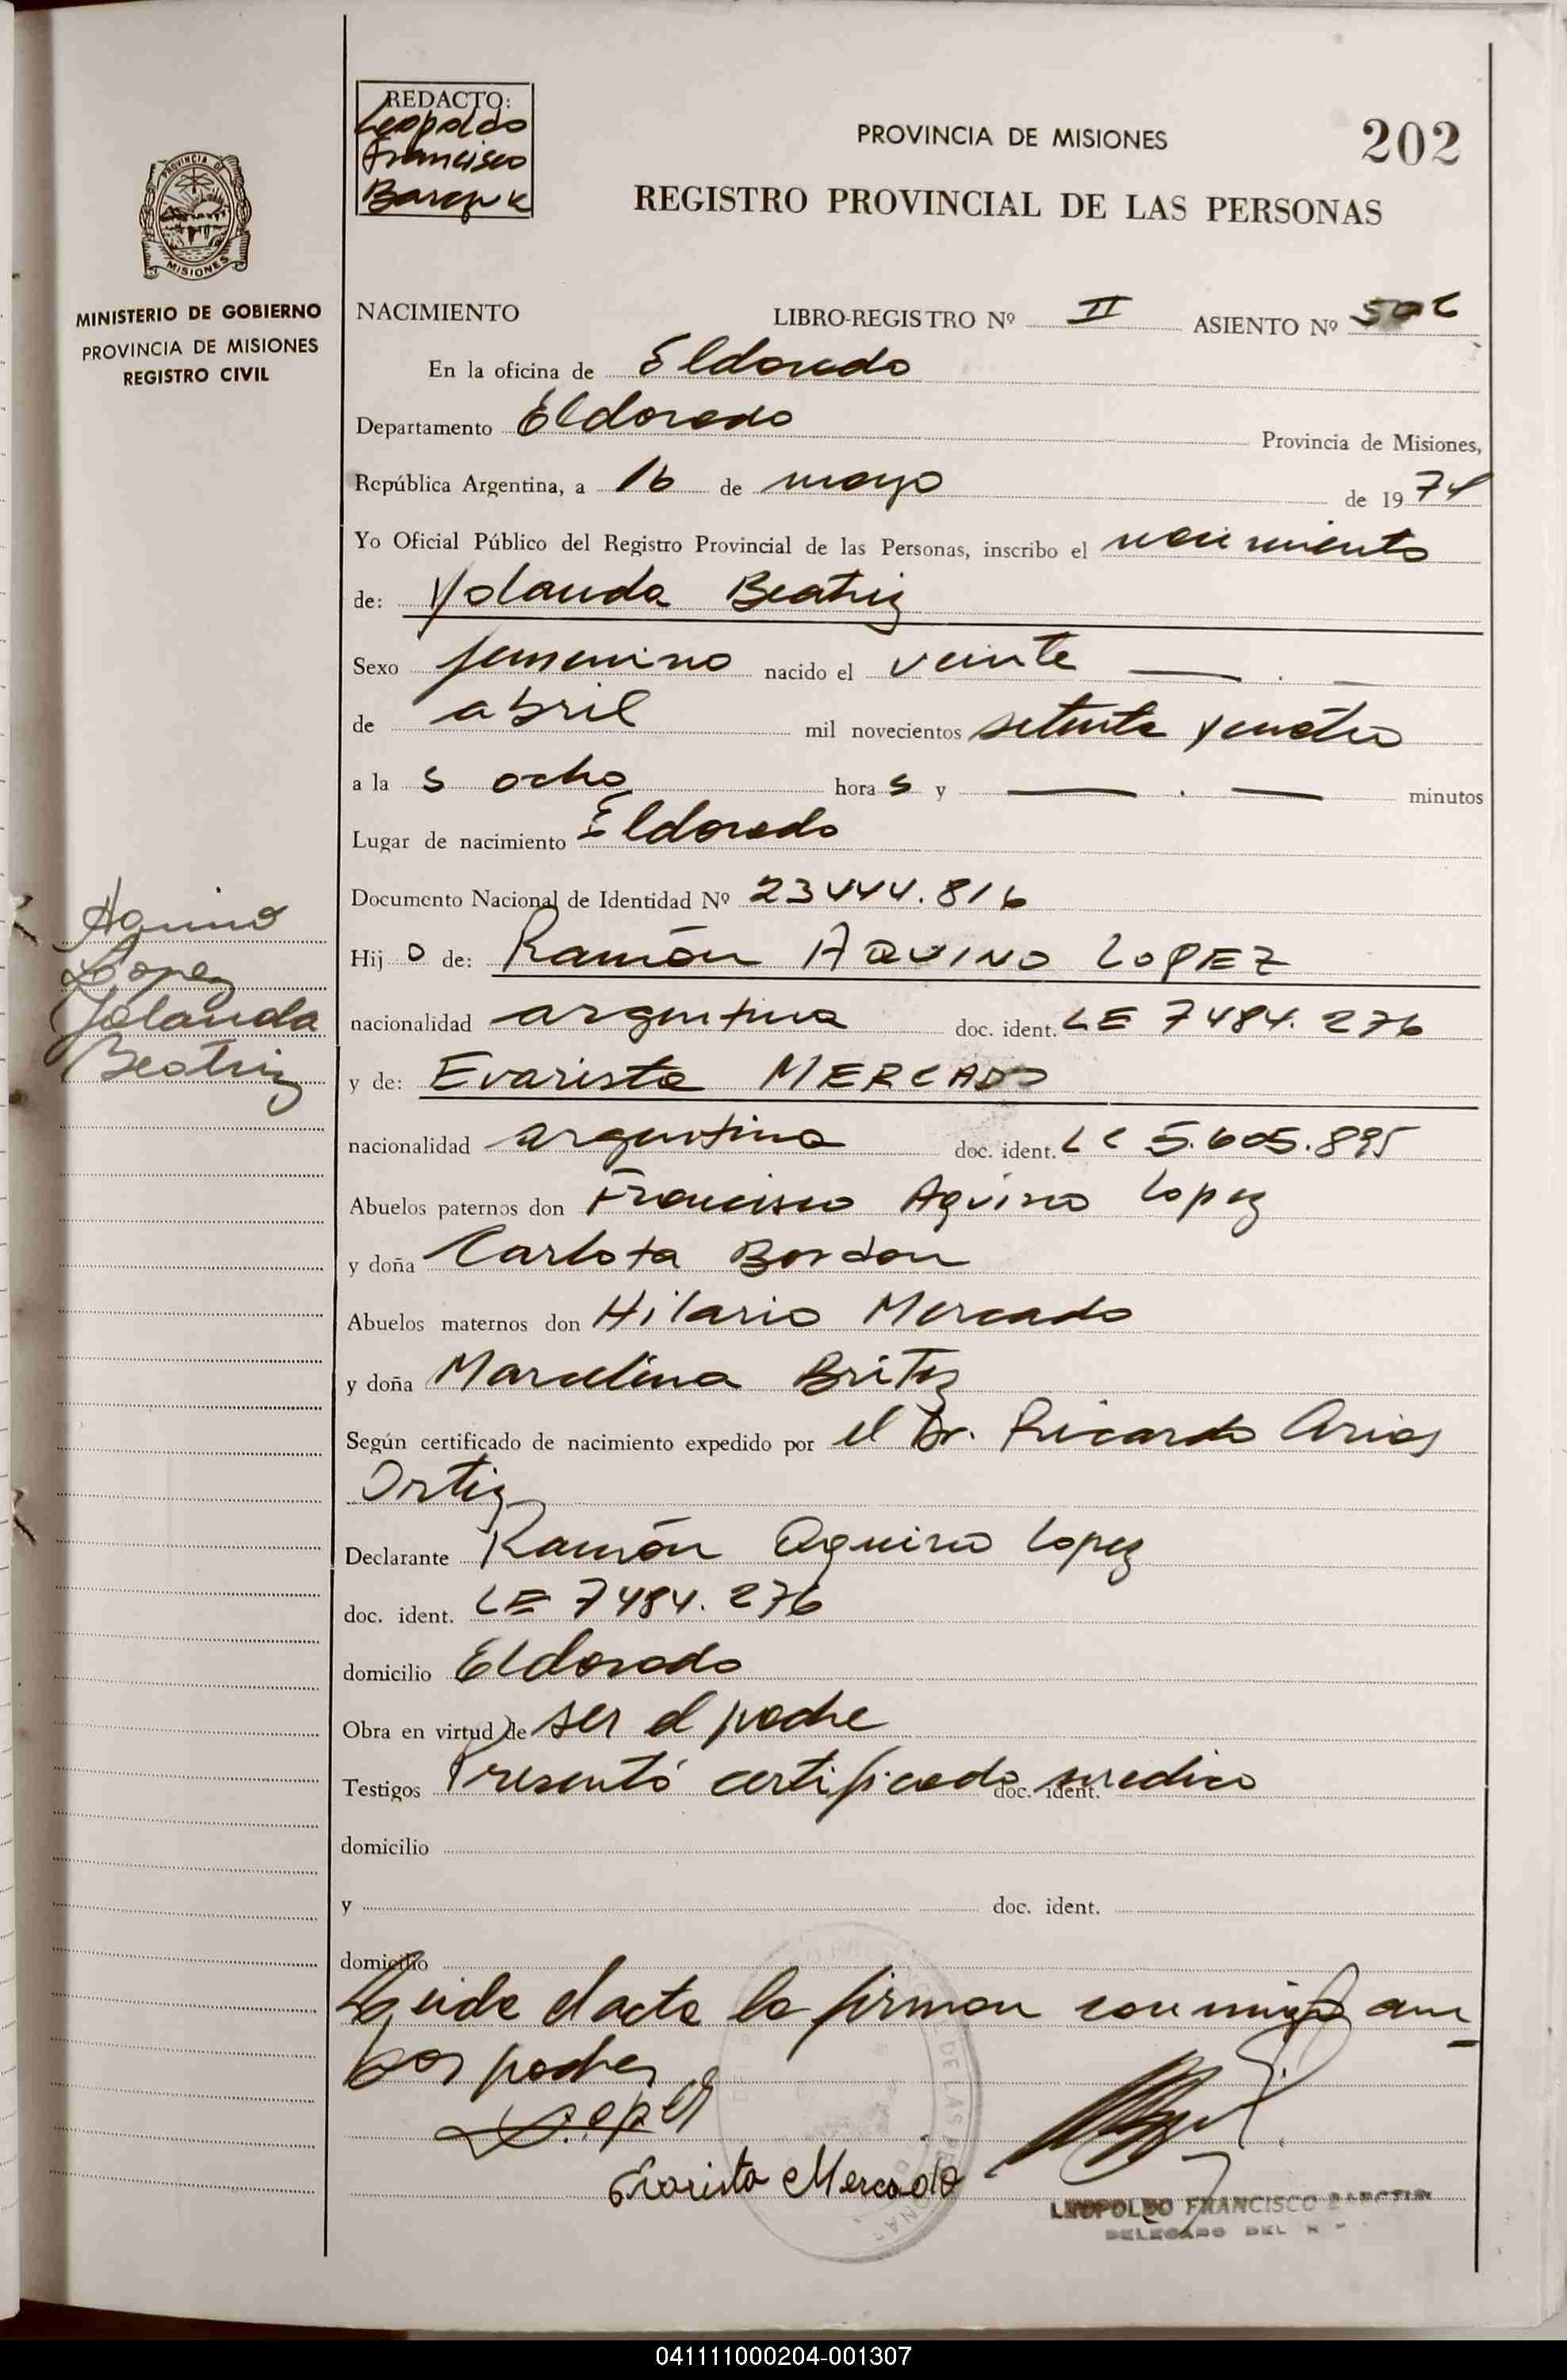 REDACTO:
Leopoldo
Francisco
PROVINCIA DE MISIONES
202
REGISTRO PROVINCIAL DE LAS PERSONAS
PROVINCIA DE
MISIONES
MINISTERIO DE GOBIERNO
PROVINCIA DE MISIONES
REGISTRO CIVIL
NACIMIENTO LIBRO-REGISTRO Nº II ASIENTO Nº
En la oficina de Eldorado
Departamento Eldorado Provincia de Misiones,
República Argentina, a 16 de mayo de 1974
Yo Oficial Público del Registro Provincial de las Personas, inscribo el nacimiento
de: Yolanda Beatriz
Sexo femenino nacido el veinte
de abril mil novecientos setenta y cuatro
a la s ocho hora s y minutos
Lugar de nacimiento Eldorado
Documento Nacional de Identidad Nº 23444.816
Hij o de: Ramón AQUINO LOPEZ
nacionalidad argentina doc. ident. LE 7484.276
y de: Evarista MERCADO
nacionalidad argentina doc. ident. LC 5.605.895
Abuelos paternos don Francisco Aquino Lopez
y doña Carlota Bordon
Abuelos maternos don Hilario Mercado
y doña Marcelina Britez
Según certificado de nacimiento expedido por el Dr. Ricardo Arias
Ortiz
Declarante Ramón Aquino Lopez
doc. ident. LE 7484.276
domicilio Eldorado
Obra en virtud de ser el padre
Testigos Presentó certificado doc. ident. medico
domicilio
y doc. ident.
domicilio
Leida el acta la firman conmigo am
bos padres
Lopez
Evarista Mercado
LEOPOLDO FRANCISCO
DELEGADO DEL
Aquino
Lopez
Yolanda
Beatriz
041111000204-001307